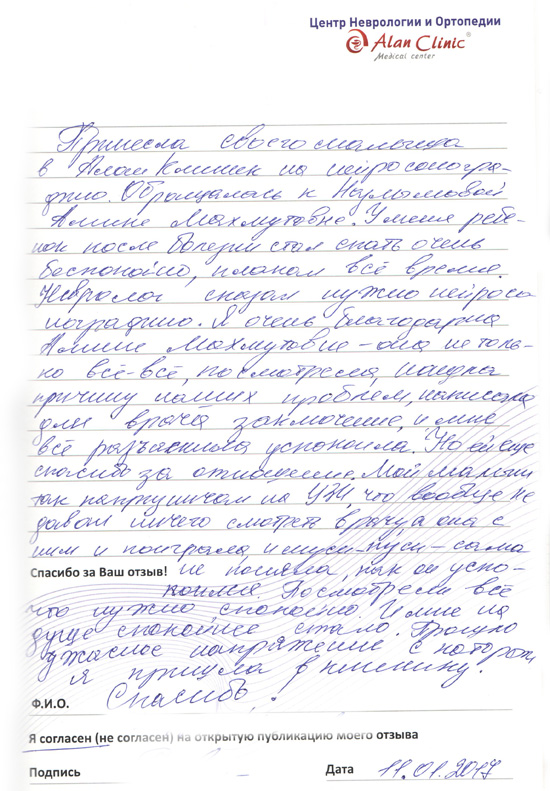 Центр Неврологии и Ортопедии
Alan Clinic®
Medical center
Принесла своего малыша
в Алан Клиник на нейросоногра-
фию. Обращалась к Наумовой
Амине Махмутовне. У меня ребе-
нок после болезни стал спать очень
беспокойно, плакал всё время.
Невролог сказал нужно нейросо
нографию. Я очень благодарна
Амине Махмутовне – она не толь-
ко всё-всё посмотрела, нашла
причину наших проблем, написала
для врача заключение, и мне
всё разъяснила успокоила. Но ей ещё
спасибо за отношение. Мой малыш
так капризничал на УЗИ, что вообще не
давал ничего смотреть врачу, а она с
ним и поиграла, и муси-пуси – сама
Спасибо за Ваш отзыв! не поняла, как он успо-
коился. Посмотрели всё
что нужно спокойно. И мне на
душе спокойнее стало. Прошло
ужасное напряжение с которым
я пришла в клинику.
Ф.И.О. Спасибо!
Я согласен (не согласен) на открытую публикацию моего отзыва
Подпись Дата 11.01.2017